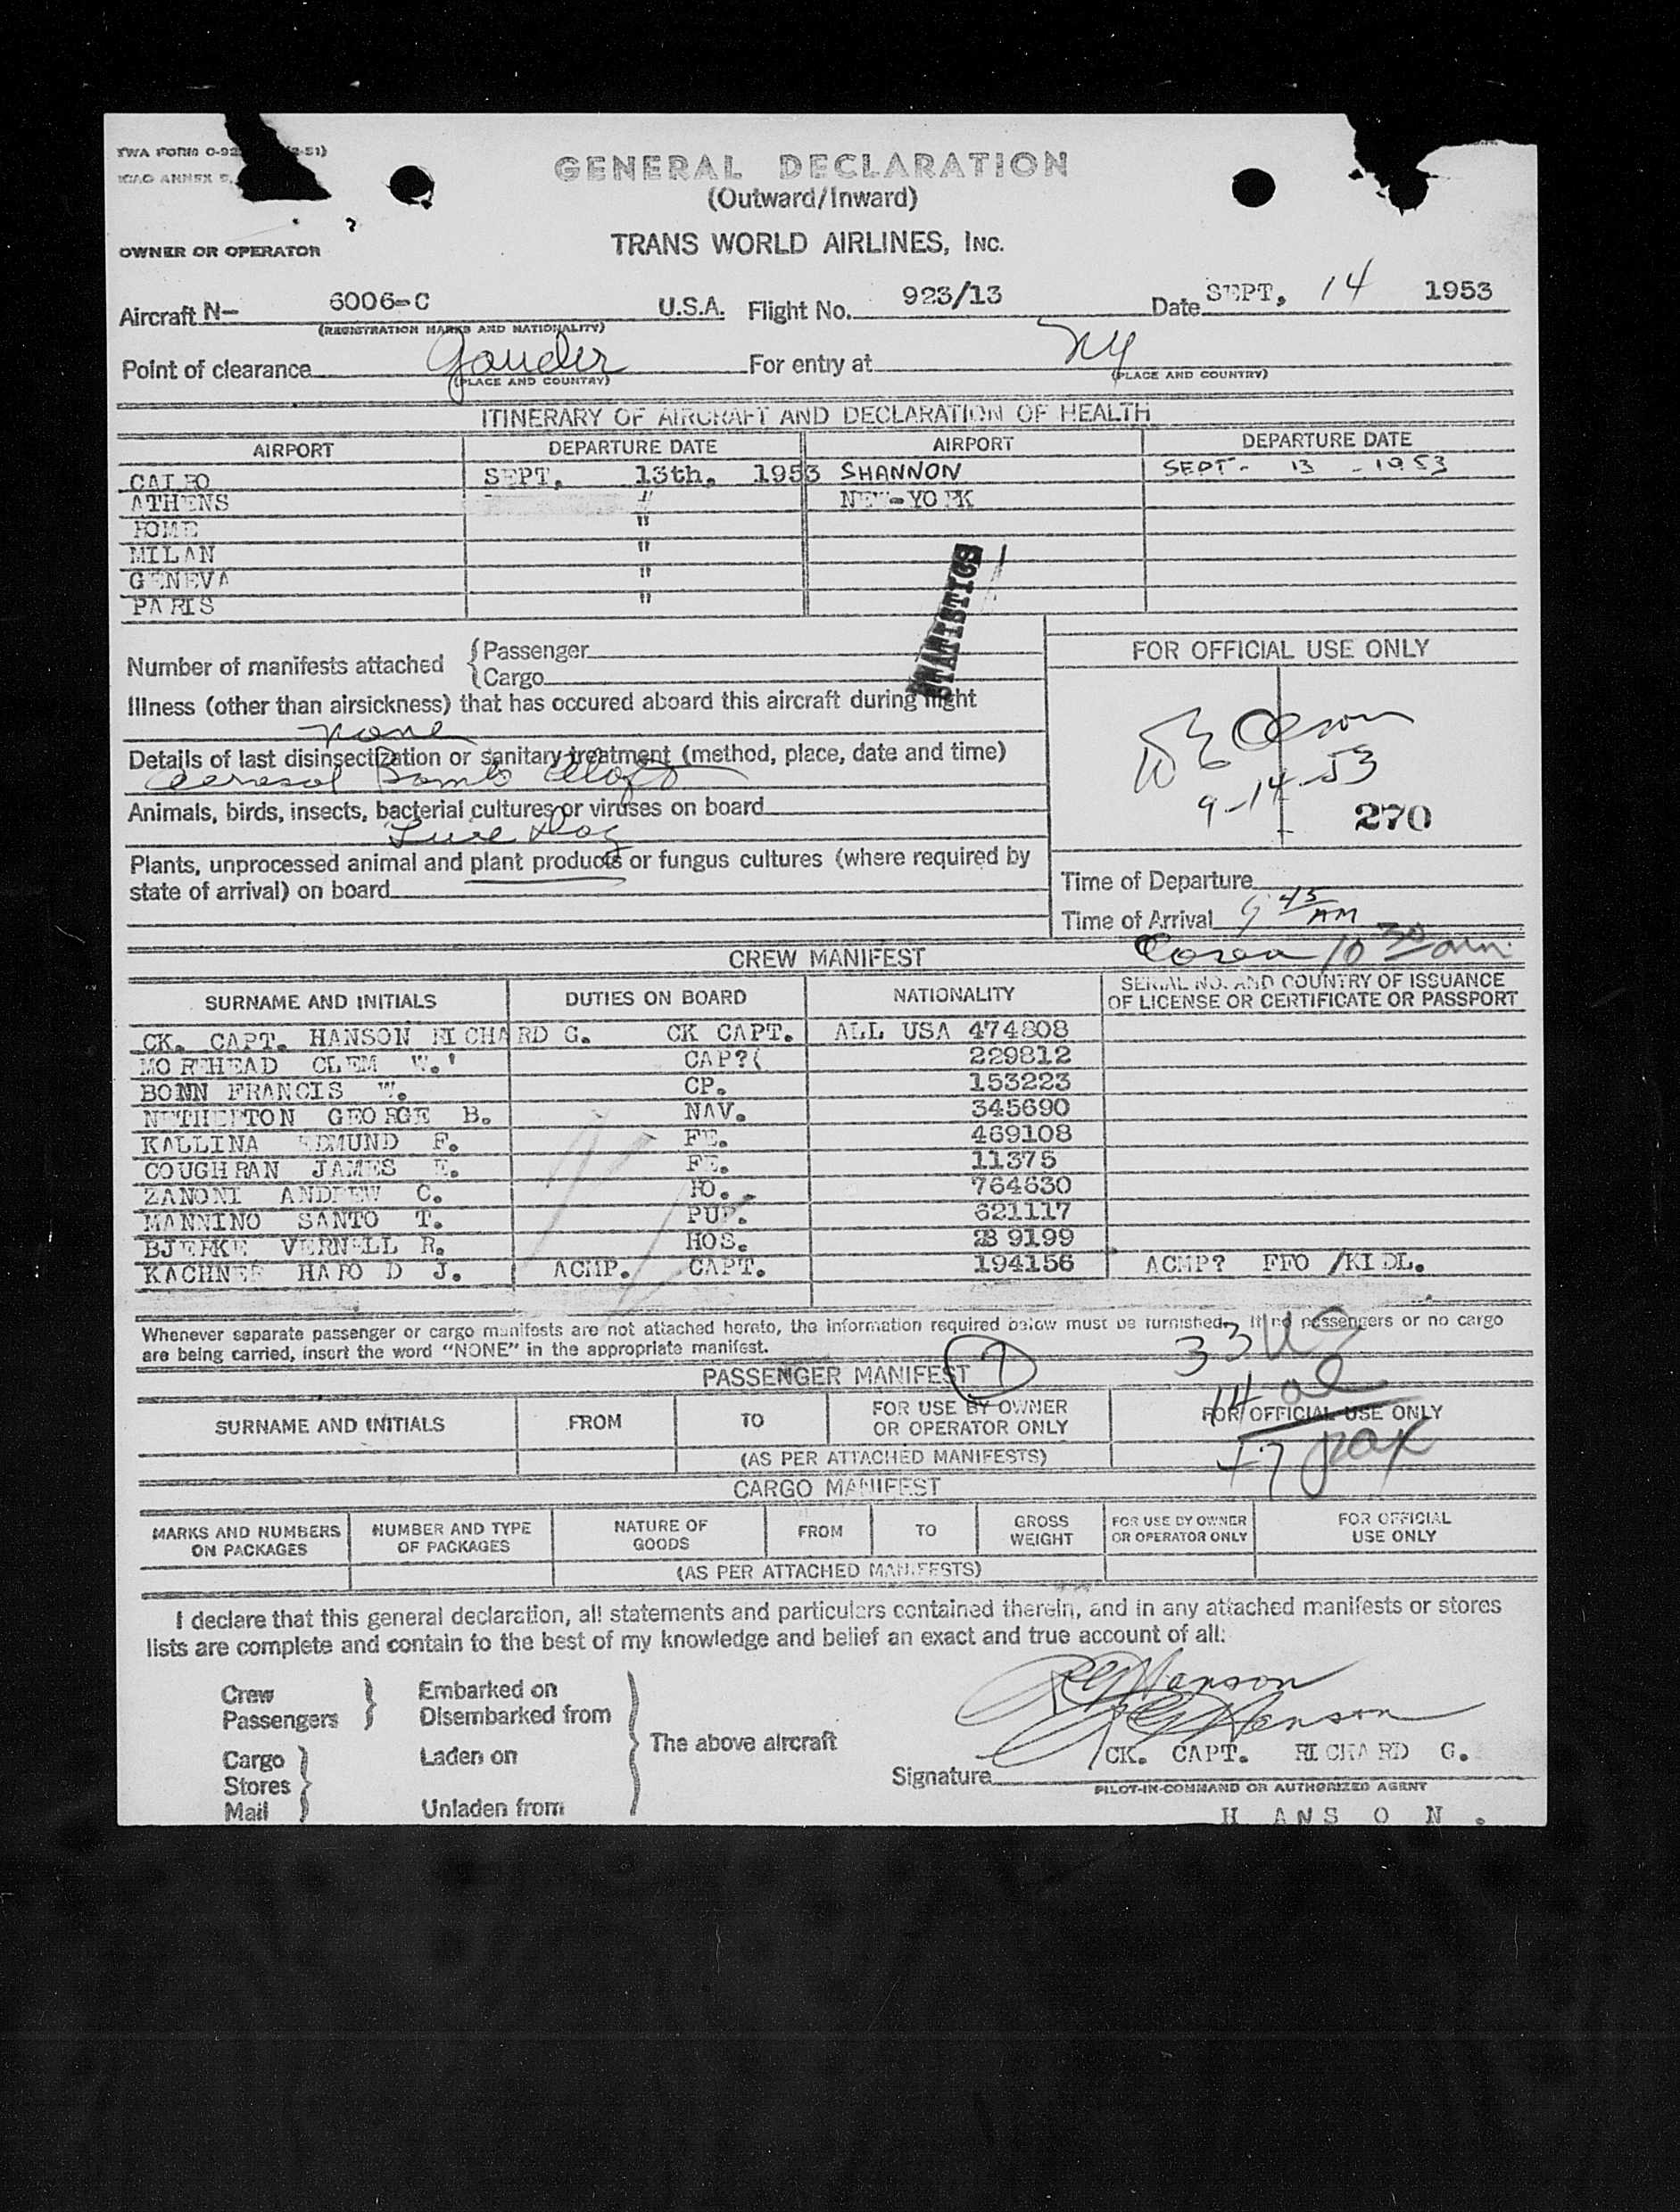 TWA FORM O-92 -51)
ICAO ANNEX 9,
GENERAL DECLARATION
(Outward/Inward)
OWNER OR OPERATOR
TRANS WORLD AIRLINES, INC.
Aircraft N- 6006-C U.S.A. Flight No. 923/13 Date SEPT, 14 1953
(REGISTRATION MARKS AND NATIONALITY)
Point of clearance Gander For entry at NY
(PLACE AND COUNTRY) (PLACE AND COUNTRY)
ITINERARY OF AIRCRAFT AND DECLARATION OF HEALTH
AIRPORT DEPARTURE DATE AIRPORT DEPARTURE DATE
CAIRO SEPT, 13th, 1953 SHANNON SEPT- 13 -1953
ATHENS " NEW-YORK
ROME "
MILAN "
GENEVA "
PARIS "
STATISTICS
Number of manifests attached { Passenger
{ Cargo
FOR OFFICIAL USE ONLY
Illness (other than airsickness) that has occured aboard this aircraft during flight
none
Details of last disinsectization or sanitary treatment (method, place, date and time)
Aerosol Bomb Aloft
Olson
9-14-53
270
Animals, birds, insects, bacterial cultures or viruses on board
Live dog
Plants, unprocessed animal and plant products or fungus cultures (where required by
state of arrival) on board
Time of Departure
Time of Arrival 9 45 AM
10 30 am.
CREW MANIFEST
SURNAME AND INITIALS DUTIES ON BOARD NATIONALITY SERIAL NO. AND COUNTRY OF ISSUANCE
OF LICENSE OR CERTIFICATE OR PASSPORT
CK. CAPT. HANSON RICHARD G. CK CAPT. ALL USA 474808
MOREHEAD CLEM W.' CAP?( 229812
BONN FRANCIS W. CP. 153223
NETHERTON GEORGE B. NAV. 345690
KALLINA EDMUND F. FE. 469108
COUGHRAN JAMES E. FE. 11375
ZANONI ANDREW C. RO. 764630
MANNINO SANTO T. PUR. 621117
BJERKE VERNELL R. HOS. 9199
KACHNER HAROLD J. ACMP. CAPT. 194156 ACMP? FFO /KIDL.
Whenever separate passenger or cargo manifests are not attached hereto, the information required below must be furnished. If no passengers or no cargo
are being carried, insert the word "NONE" in the appropriate manifest.
33 US
PASSENGER MANIFEST 7
14 al
SURNAME AND INITIALS FROM TO FOR USE BY OWNER
OR OPERATOR ONLY FOR OFFICIAL USE ONLY
47 pax
(AS PER ATTACHED MANIFESTS)
CARGO MANIFEST
MARKS AND NUMBERS
ON PACKAGES NUMBER AND TYPE
OF PACKAGES NATURE OF
GOODS FROM TO GROSS
WEIGHT FOR USE BY OWNER
OR OPERATOR ONLY FOR OFFICIAL
USE ONLY
(AS PER ATTACHED MANIFESTS)
I declare that this general declaration, all statements and particulars contained therein, and in any attached manifests or stores
lists are complete and contain to the best of my knowledge and belief an exact and true account of all:
Crew
Passengers } Embarked on
Disembarked from
Cargo
Stores
Mail } Laden on
Unladen from } The above aircraft
RG Hanson
RG Hanson
CK. CAPT. RICHARD G.
Signature
PILOT-IN-COMMAND OR AUTHORIZED AGENT
H ANS O N .